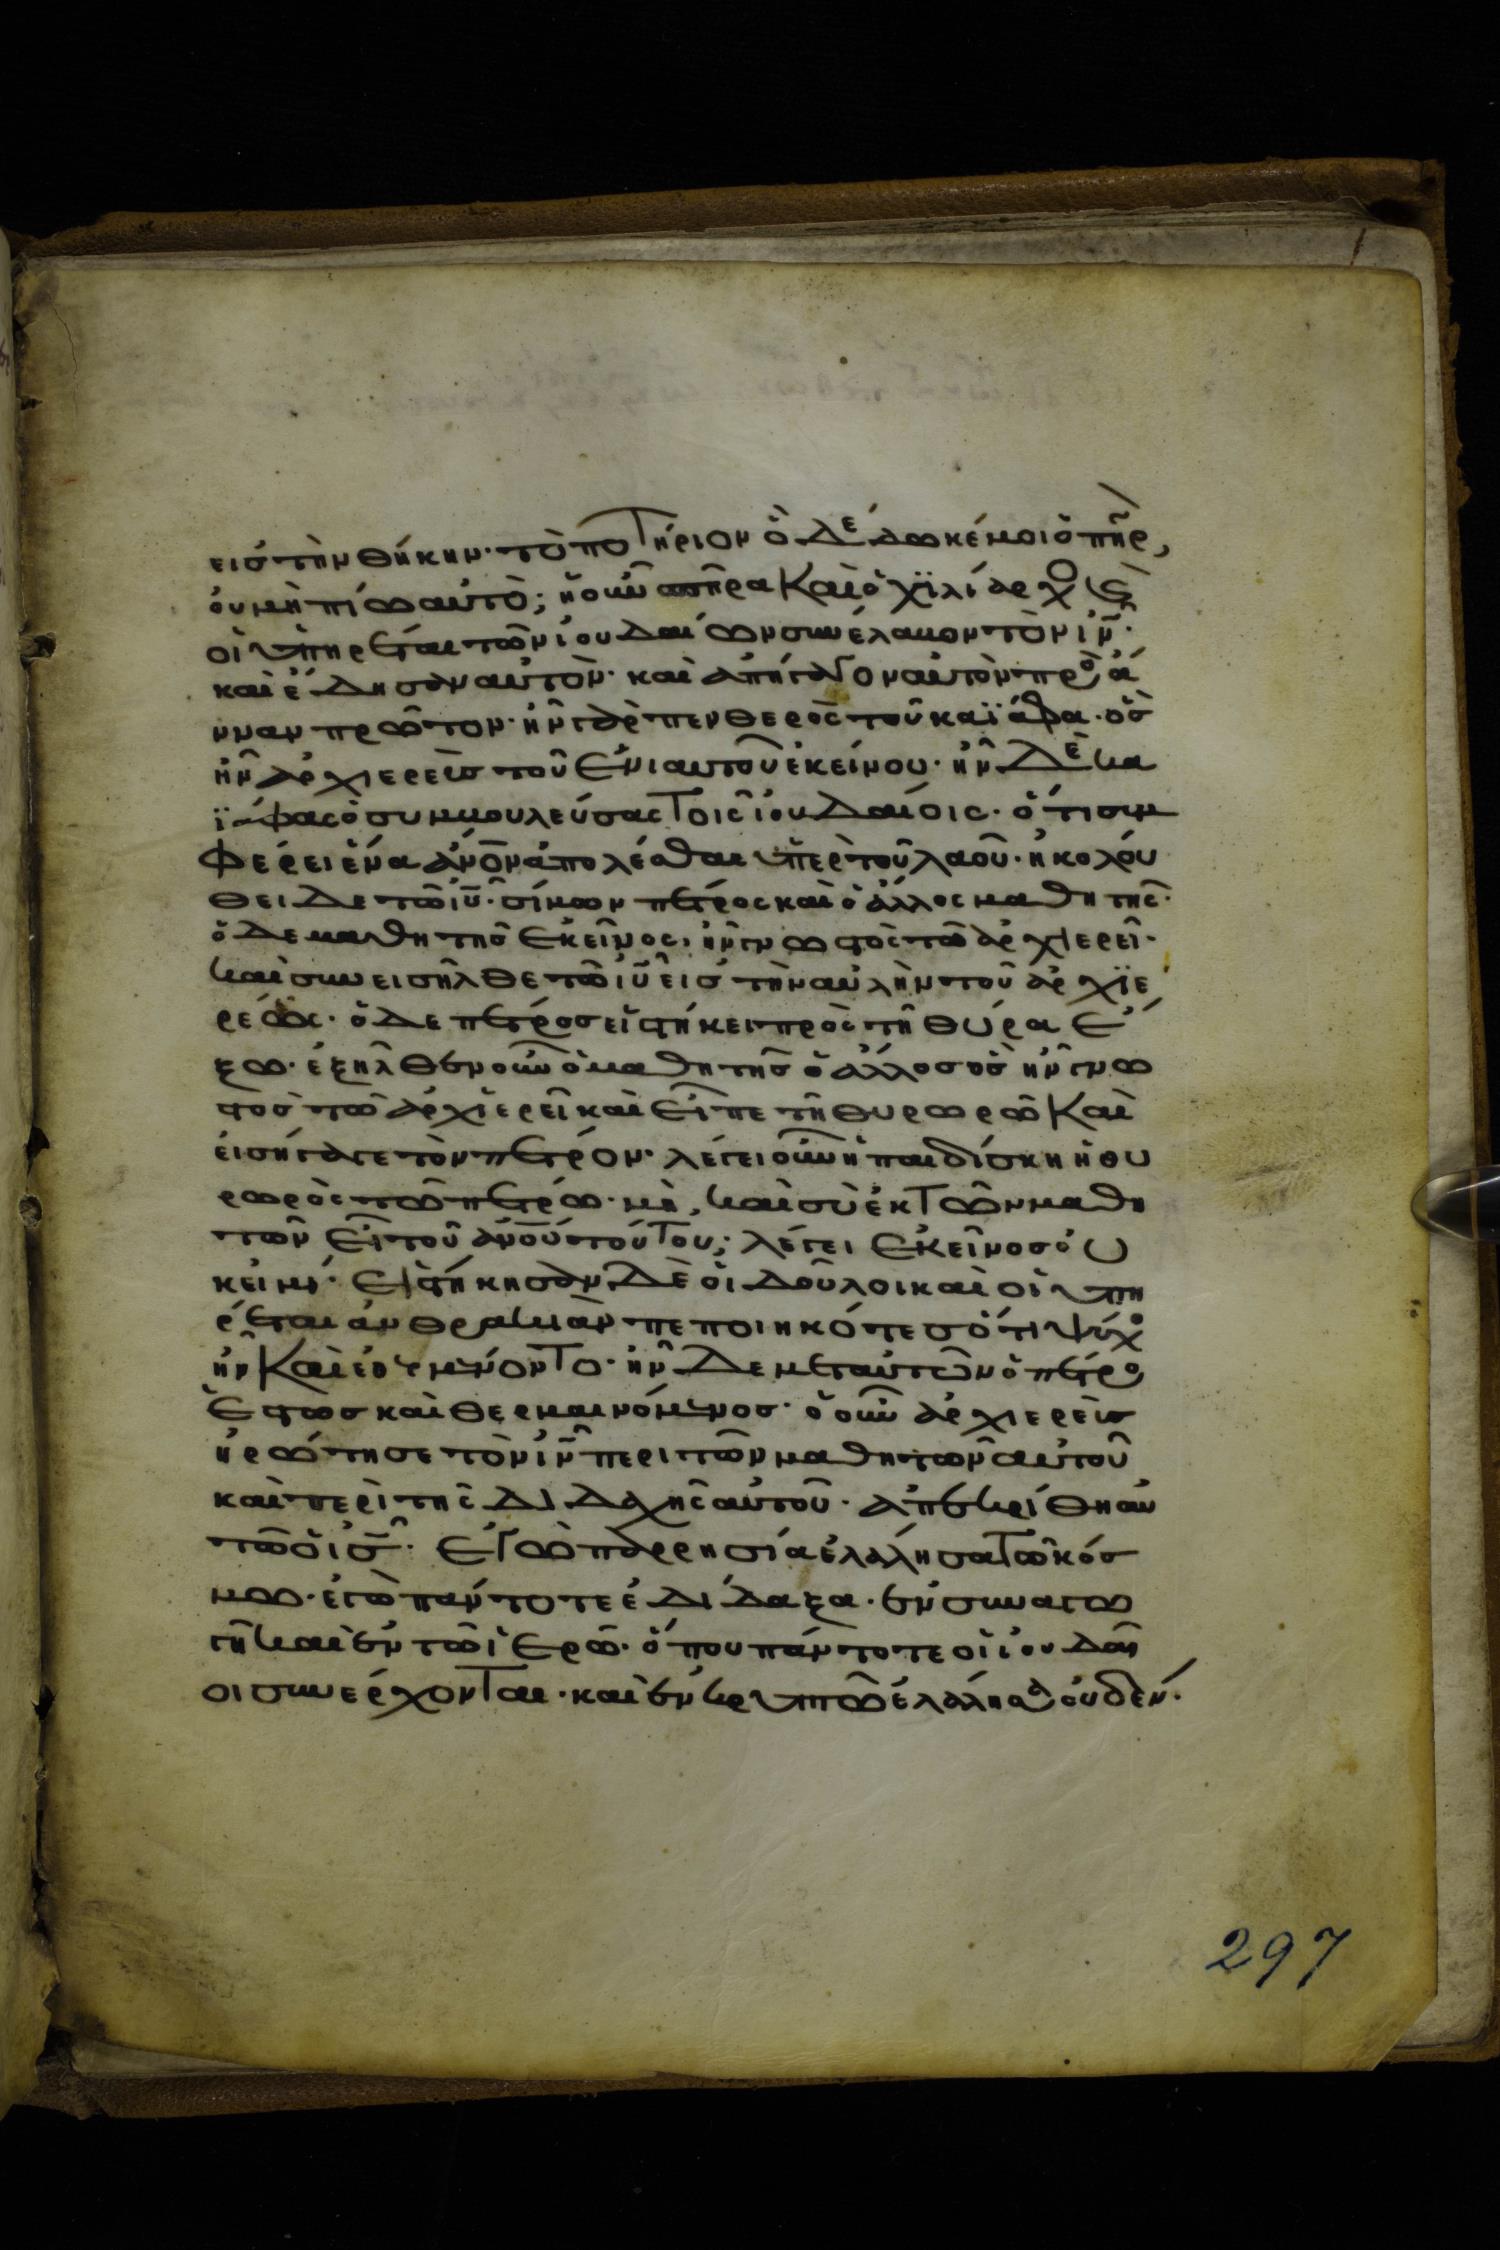 εις τὴν θήκην· τὸ ποτήριον ὃ δέδωκέ μοι ὁ πηρ,
ου μὴ πίω αυτὸ; ἡ οὖν σπῆρα Καὶ ὁ χϊλίαρχο ϗ
οἱ ὑπηρέται τῶν ἰουδαίων συνέλαβον τὸν ἰν·
καὶ ἔδησαν αυτὸν· καὶ ἀπήγαγον αυτὸν πρὸς ἄ
νναν πρῶτον· ἦν γὰρ πενθερὸς τοῦ καϊάφα· ὃς
ἦν ἀρχιερεὺς τοῦ ἐνιαυτοῦ ἐκείνου· ἦν δὲ κα
ϊάφας ὁ συμβουλεύσας τοῖς ἰουδαίοις· ὅτι συμ
φέρει ἕνα ἀνον ἀπολέσθαι ὑπὲρ τοῦ λαοῦ· ἠκολού
θει δε τῶ ιυ· σίμων πέτρος καὶ ὁ ἄλλος μαθητής·
ὁ δε μαθητης ἐκεῖνος, ἦν γνωστὸς τῶ ἀρχιερεῖ·
καὶ συνεισῆλθε τῶ ιυ εις τὴν αυλὴν του ἀρχϊε
ρέως· ὁ δε πέτρος εἱστήκει πρὸς τῆ θύρα ἔ
ξω· ἐξῆλθεν οὖν ὁ μαθητης ὁ ἄλλος ὃς ἦν γνω
στὸς τῶ ἀρχιερεῖ καὶ εἶπε τῆ θυρωρῶ Καὶ
εισήγαγε τὸν πέτρον· λέγει οὖν ἡ παιδίσκη ἡ θυ
ρωρὸς τῶ πέτρω· μὴ, καὶ σὺ ἐκ τῶν μαθη
τῶν εἶ τοῦ ἀνου τούτου; λέγει ἐκεῖνος ὀυ
κ εἰμί· εἱστήκησαν δὲ ὁι δοῦλοι καὶ οἱ ὑπη
ρέται ἀνθρακιὰν πεποιηκότες ὅτι ψύχο
ἦν Καὶ ἐθερμαίνοντο· ἦν δε μετ αὐτῶν ὁ πέτρο
ἑστως καὶ θερμαινόμενος· ὁ οὖν ἀρχιερεὺς
ἠρώτησε τὸν ἰν περι τῶν μαθητῶν αυτοῦ
καὶ περὶ της διδαχῆς αὐτοῦ· ἀπεκρίθη αὐ
τῶ ὁ ις· ἐγὼ παρρησία ἐλάλησα τῶ κόσ
μω· ἐγὼ πάντοτε ἐδίδαξα· ἐν συναγω
γῆ καὶ ἐν τῶ ἱερῶ· ὅπου πάντοτε οἱ ἰουδαῖ
οι συνέρχονται· καὶ ἐν κρυπτῶ ἐλάλησα οὐδέν·
297